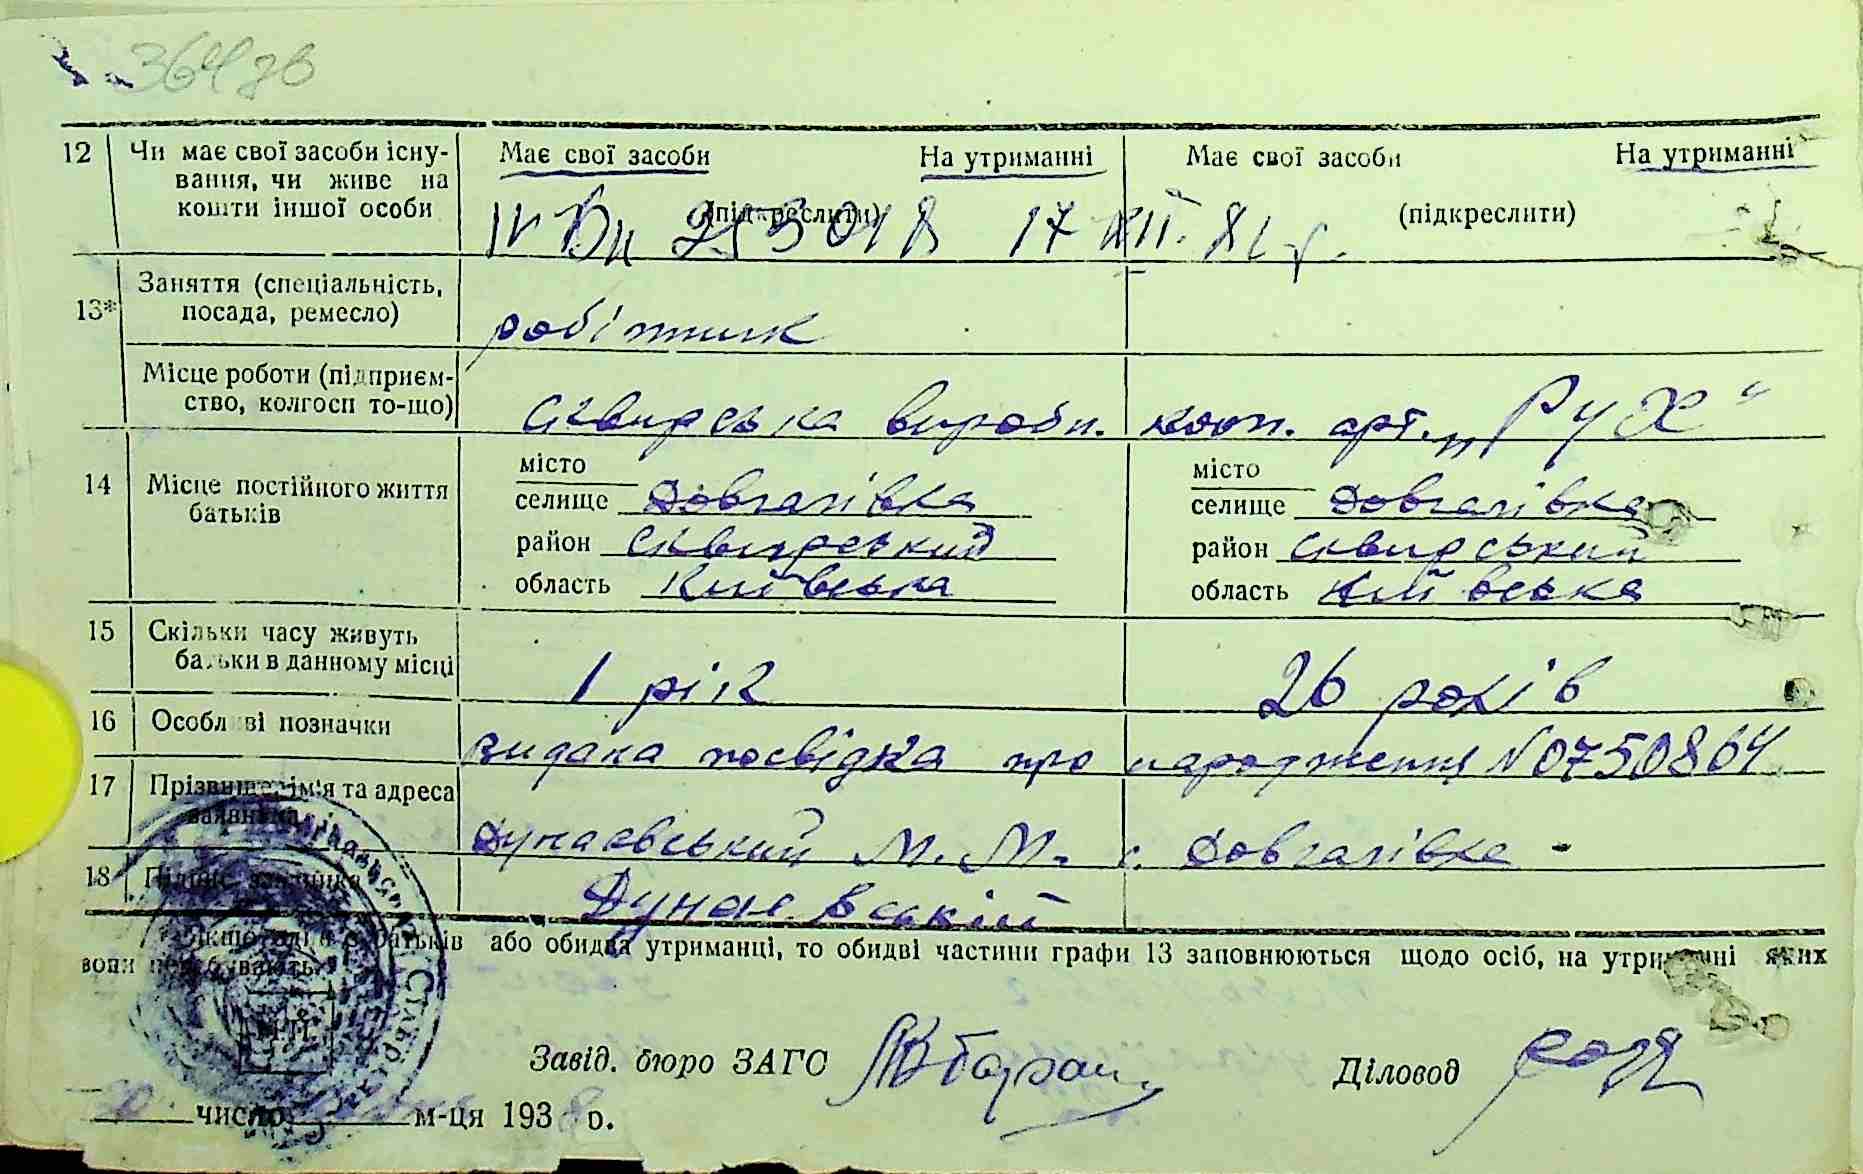 364
12 Чи має свої засоби існу- Має свої засоби На утриманні Має свої засоби На утриманні
вання, чи живе на
кошти іншої особи (підкреслити) (підкреслити)
17 XII. 81 г.
13* Заняття (спеціальність,
посада, ремесло) робітник
Місце роботи (підприєм-
ство, колгосп то-що) Сквирська вироби. кооп. арт. „Рух"
14 Місце постійного життя місто місто
батьків селище Довгалівка селище Довгалівка
район Сквирський район Сквирський
область Київська область Київська
15 Скільки часу живуть
батьки в данному місці 1 рік 26 років
16 Особливі позначки
видана посвідка про народження N 0750864
17 Прізвище, ім'я та адреса
заявника Дунаєвський М. М. с. Довгалівка -
18 Підпис заявника Дунаєвській
Якщо один з батьків або обидва утриманці, то обидві частини графи 13 заповнюються щодо осіб, на утриманні яких
вони перебувають.
М.П.
Завід. бюро ЗАГС Діловод
число м-ця 1938 р.